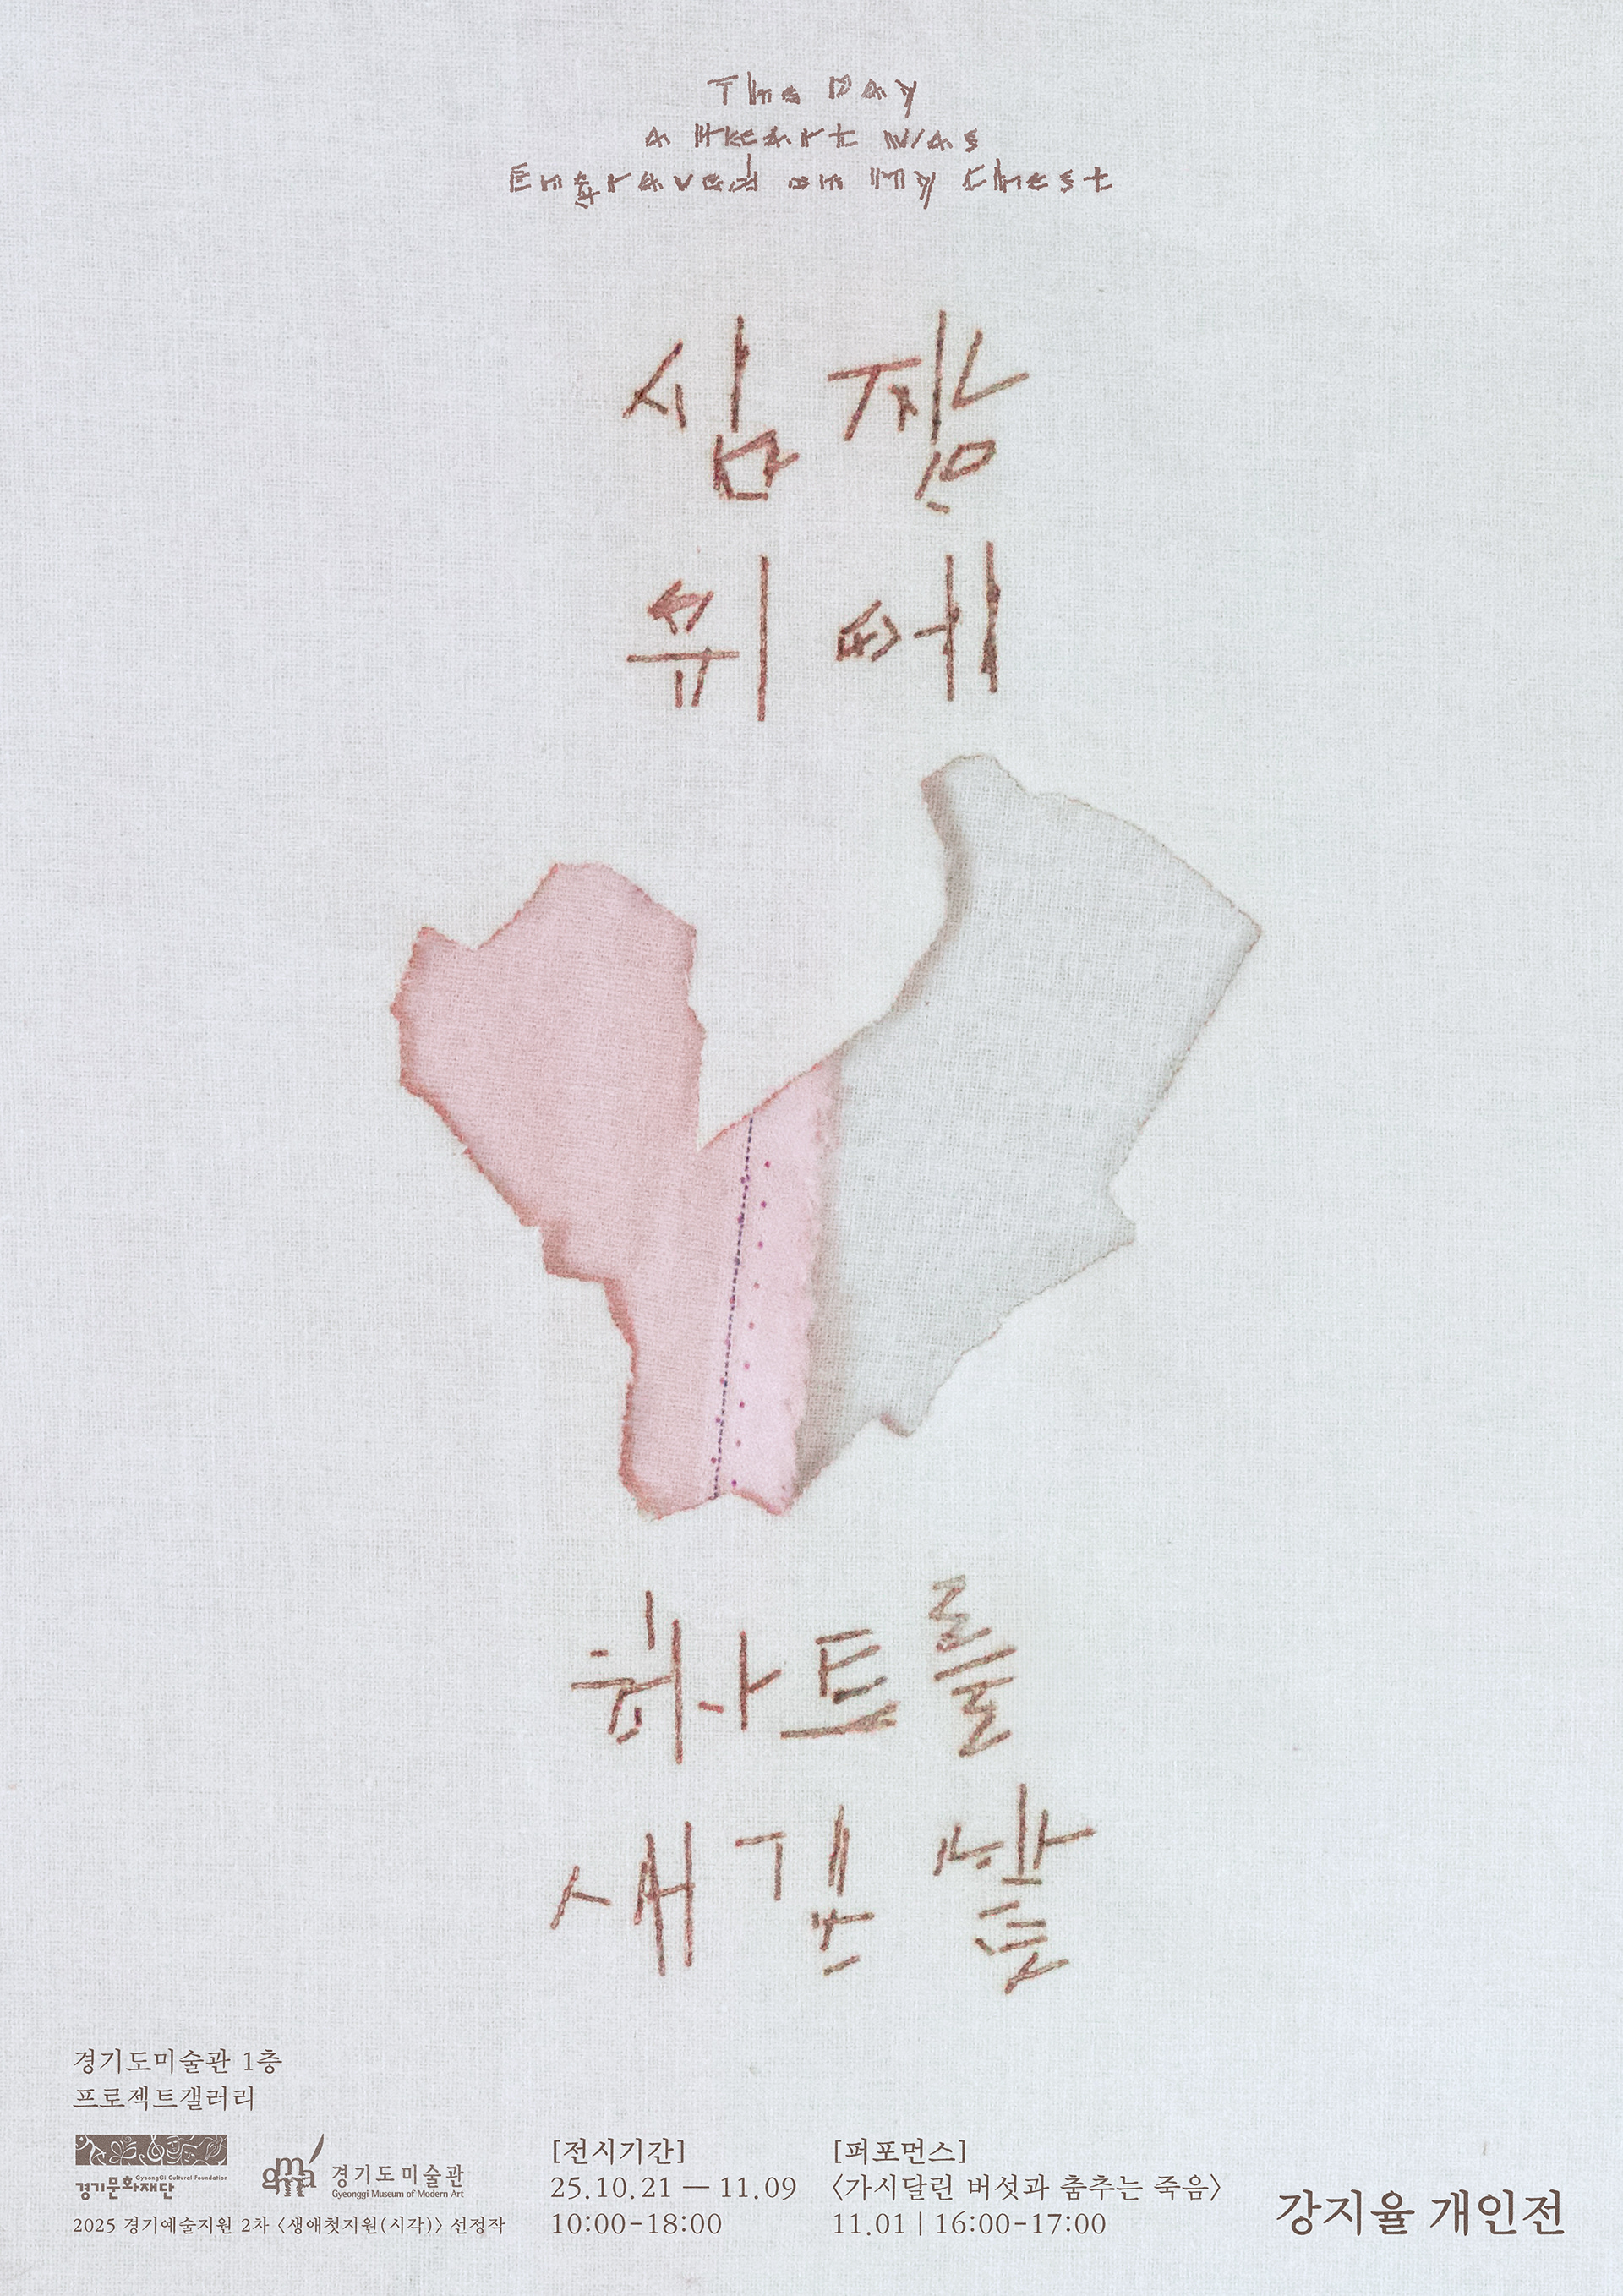 The Day
a Heart was
Engraved on My Chest
심장
위에
하트를
새긴 날
경기도미술관 1층
프로젝트갤러리
GyeongGi Cultural Foundation
경기문화재단
gmoma
경기도미술관
Gyeonggi Museum of Modern Art
2025 경기예술지원 2차 〈생애첫지원(시각)〉 선정작
[전시기간]
25.10.21 — 11.09
10:00-18:00
[퍼포먼스]
〈가시달린 버섯과 춤추는 죽음〉
11.01 | 16:00-17:00
강지율 개인전